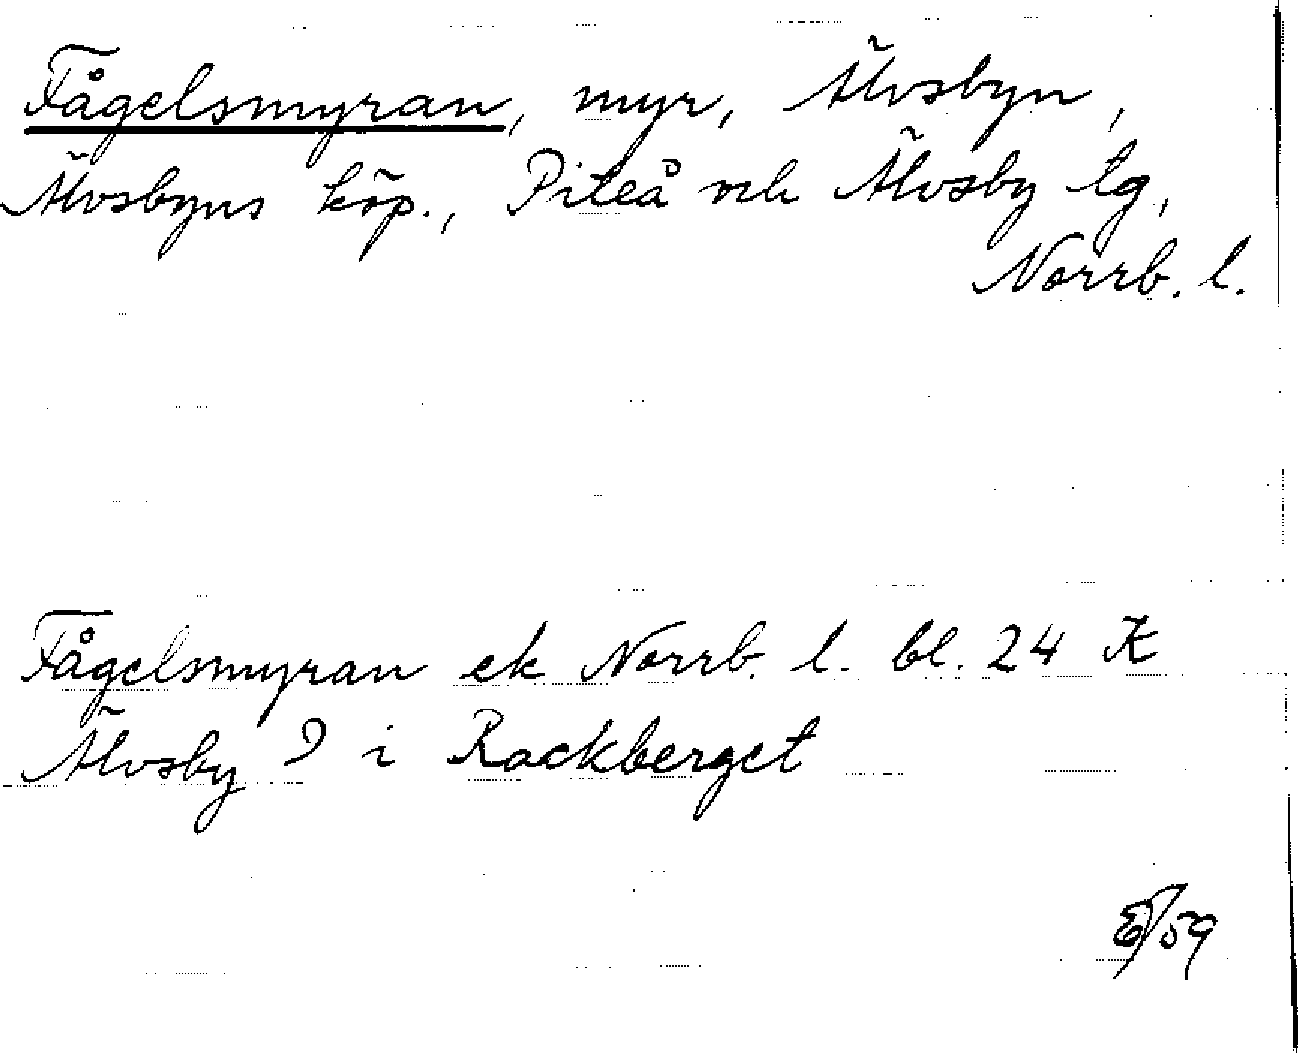 Fågelsmyran, myr, Älvsbyn,
Älvsbyns köp., Piteå och Älvsby tg,
Norrb. l.
Fågelsmyran ek Norrb. l. bl. 24 K
Älvsby 9 i Rackberget
/59